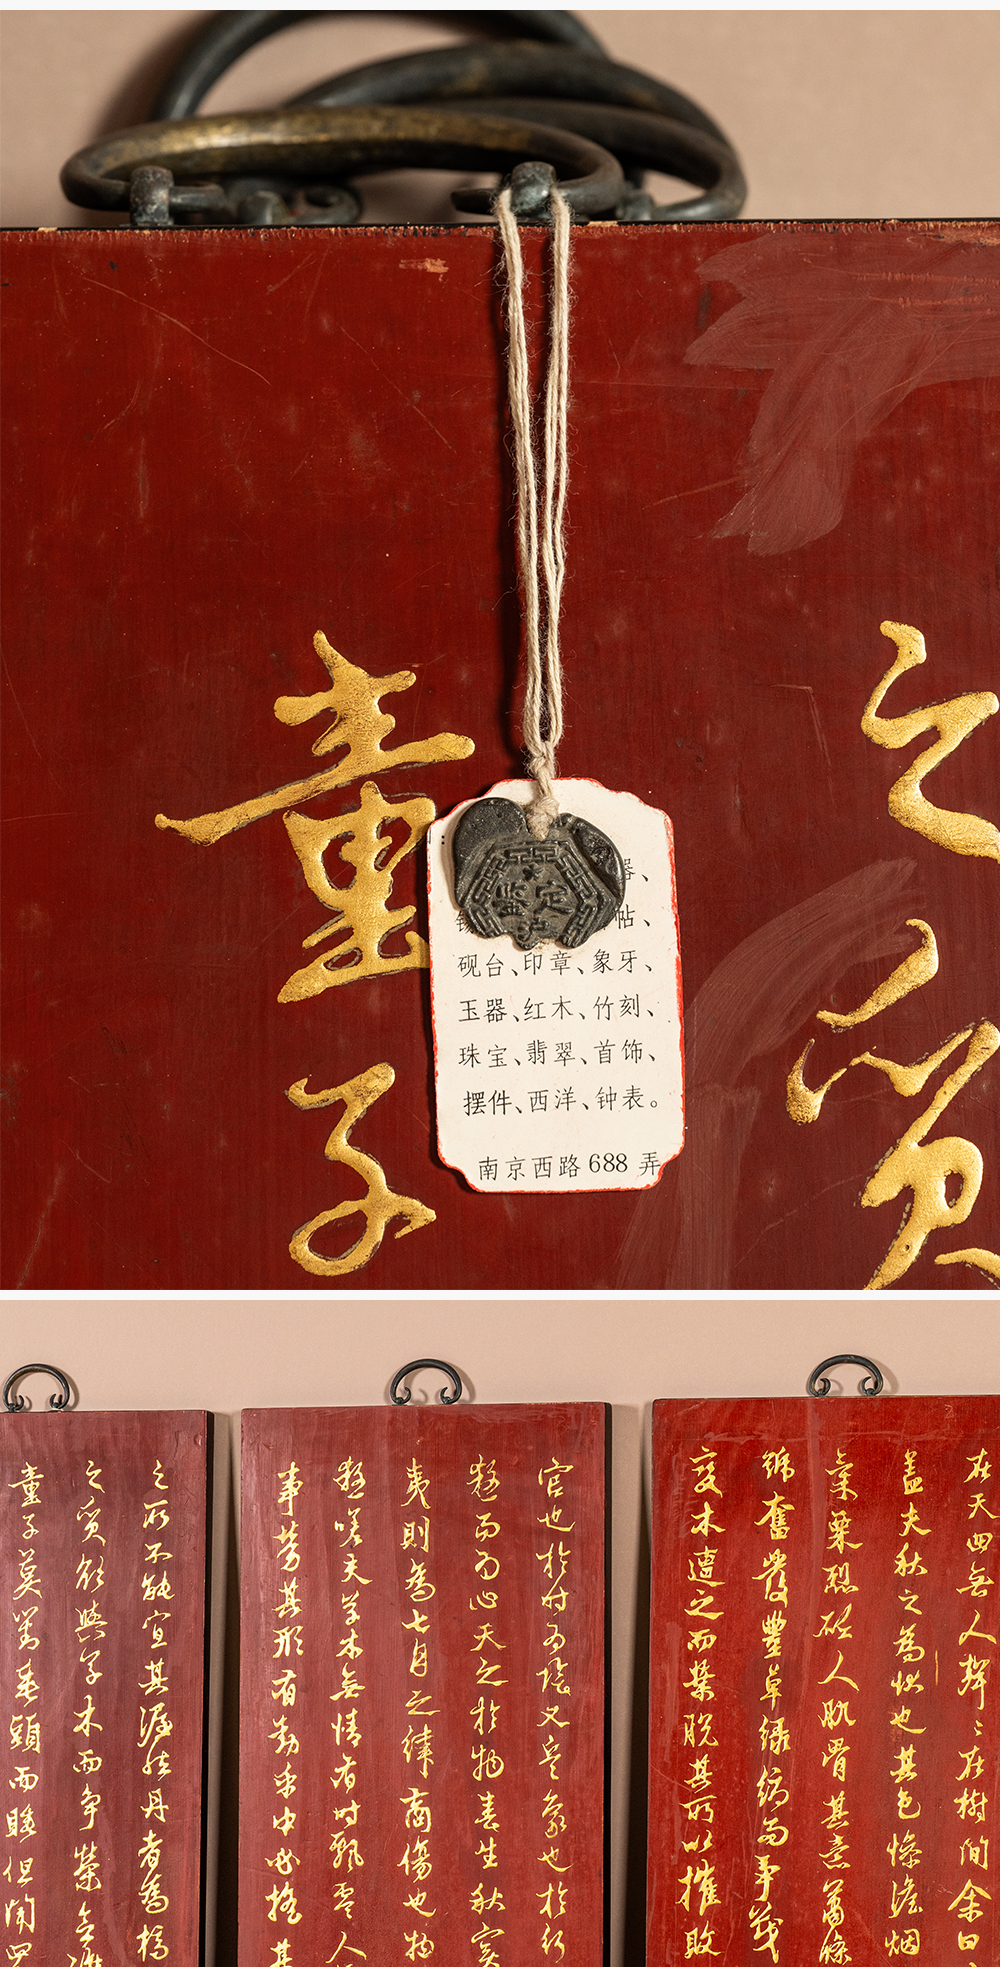 之質
童子
鉴定
沪
器、
帖、
砚台、印章、象牙、
玉器、红木、竹刻、
珠宝、翡翠、首饰、
摆件、西洋、钟表。
南京西路688弄
在天四無人聲〻在樹間余曰
蓋夫秋之為狀也其色慘澹烟
氣栗烈砭人肌骨其意蕭條
號奮發豐草綠縟而爭茂
變木遭之而葉脫其所以摧敗
官也於時為陰又兵象也於行
殺而為心天之於物春生秋實
夷則為七月之律商傷也物
殺嗟夫草木無情有時飄零人
事勞其形有動乎中必搖其
之所不能宣其渥然丹者為槁
之質欲與草木而爭榮念誰
童子莫對垂頭而睡但聞四